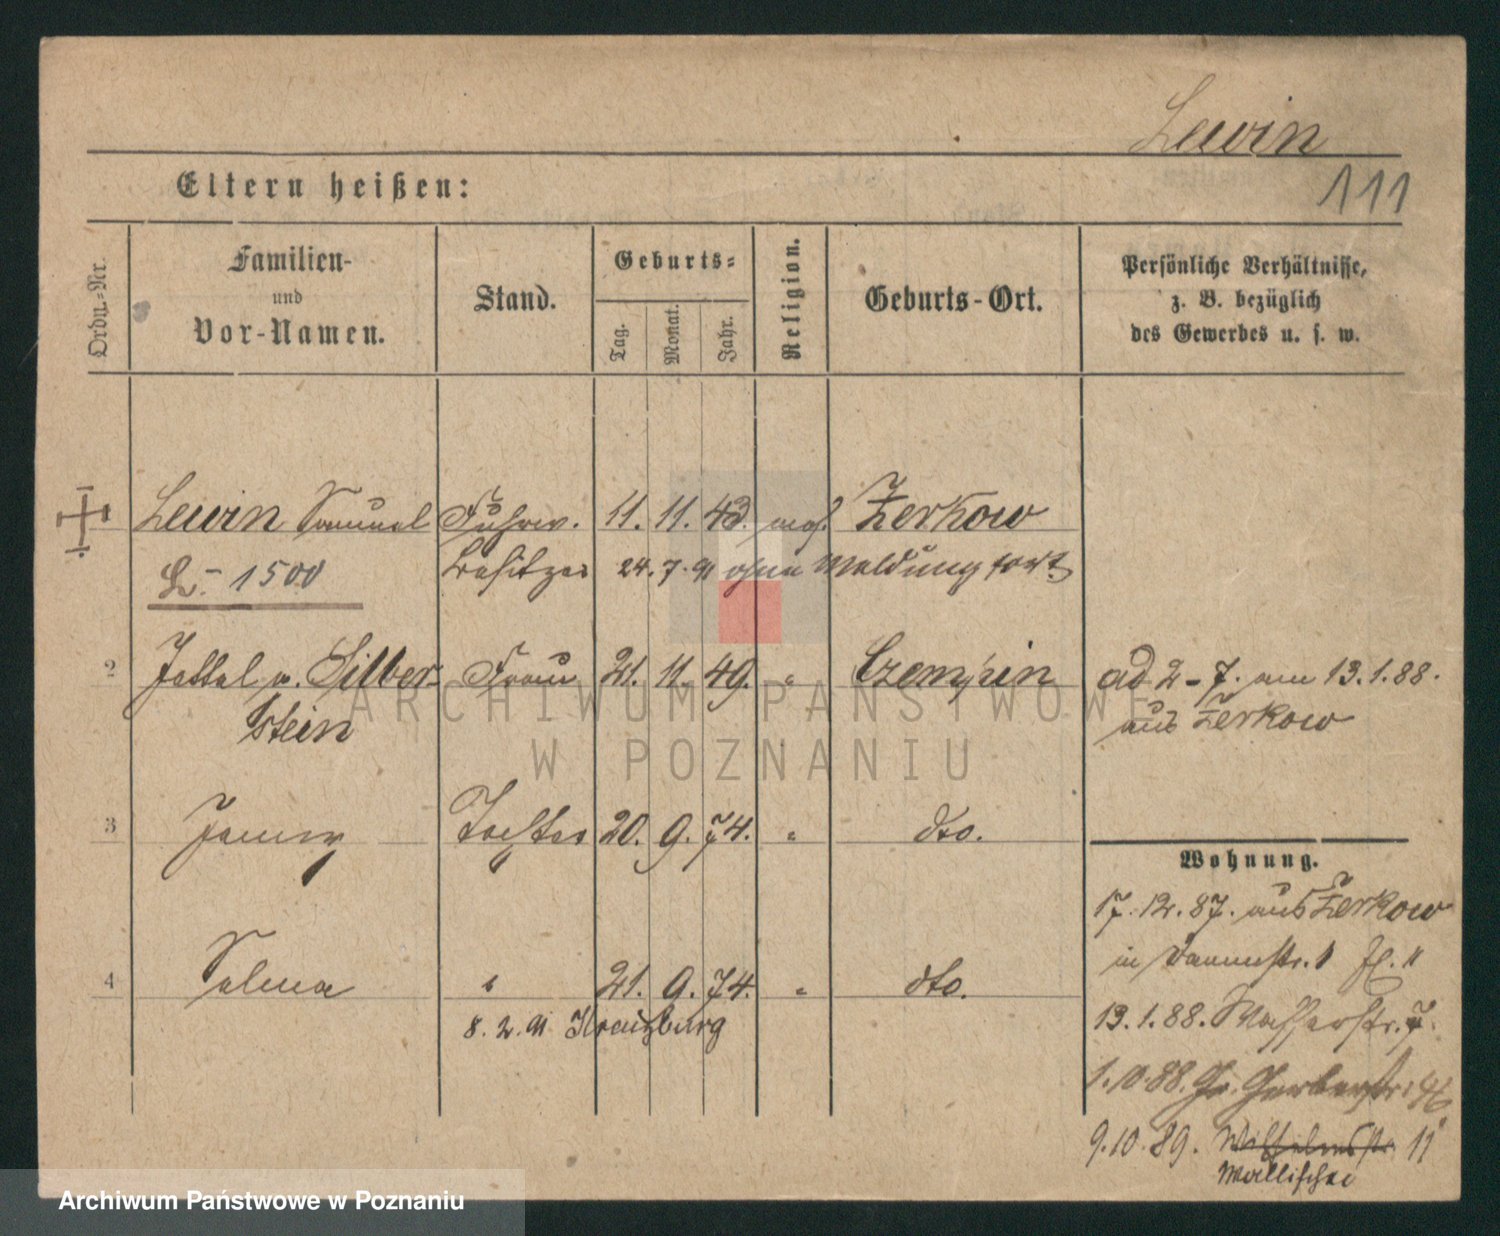 Lewin
111
Eltern heißen:
Ordn.-Nr.
Familien-
und
Vor-Namen.
Stand.
Geburts-
Tag.
Monat.
Jahr.
Religion.
Geburts-Ort.
Persönliche Verhältnisse,
z. B. bezüglich
des Gewerbes u. s. w.
1 Lewin Samuel Fuhrw. 11. 11. 43. mos. Zerkow
1500 Besitzer 24. 7. 91 ohne Meldung fort
2 Jettel v. Silber- Frau 21. 11. 49. " Czempin ad 2-7. am 13.1.88.
stein aus Zerkow
3 Jenny Tochter 20. 9. 74. " dto.
Wohnung.
17. 12. 87. aus Zerkow
in Dammstr. 1
4 Selma " 21. 9. 74. " dto.
8. 2. 91 Kreuzburg
13. 1. 88. Wasserstr. 7.
1. 10. 88. Gr. Gerberstr.
9. 10. 89. Wilhelmsstr. 11
Wallischei
ARCHIWUM PAŃSTWOWE
W POZNANIU
Archiwum Państwowe w Poznaniu